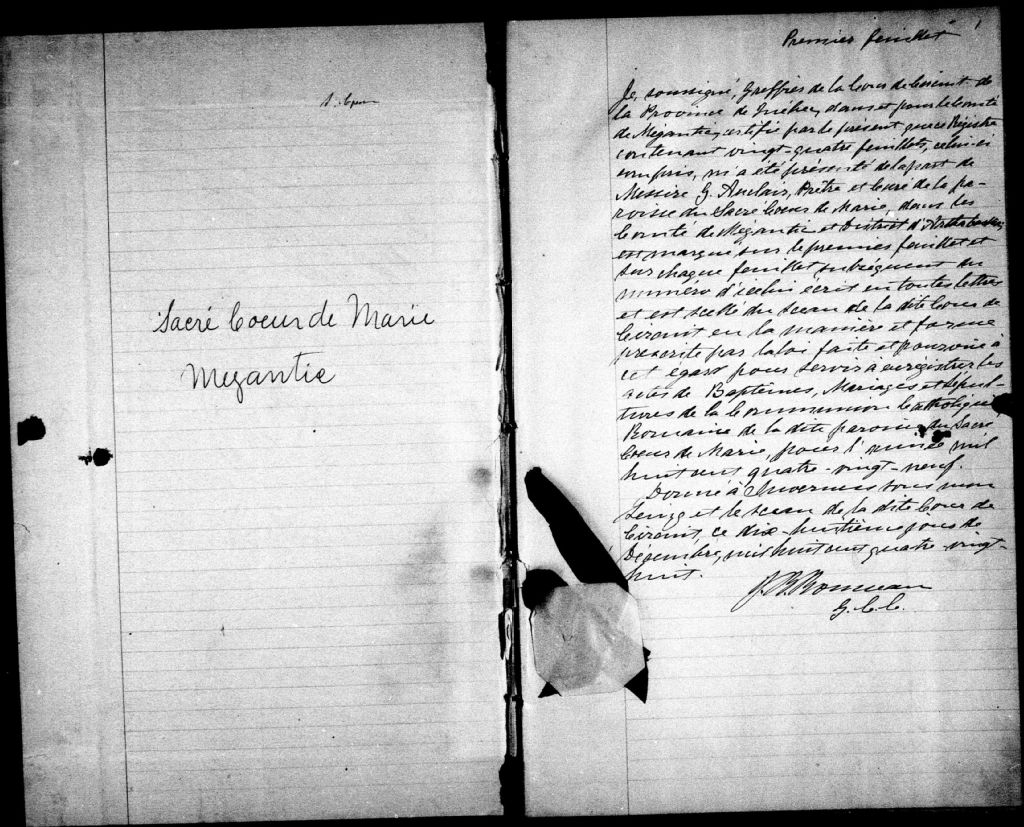 Sacré Coeur de Marie
Megantic
Premier feuillet 1
Je, soussigné, Greffier de la Cour de Circuit de
la Province de Québec, dans et pour le Comté
de Mégantic, certifie par le présent que ce Régistre
contenant vingt-quatre feuillets, celui-ci
compris, m'a été présenté de la part de
Messire G. Anclais, Prêtre et Curé de la pa-
roisse du Sacré Coeur de Marie, dans les
Comté de Mégantic et District d'Arthabaska,
est marqué sur le premier feuillet et
sur chaque feuillet subséquent du
numéro d'icelui ecrit en toutes lettres
et est scellé du sceau de la dite Cour de
Circuit en la manière et forme
prescrite par la loi faite et pourvue à
cet égard pour servir à enrégistrer les
actes de Baptêmes, Mariages et sépul-
tures de la Communion Catholique
Romaine de la dite paroisse du Sacré
Coeur de Marie, pour l'année mil
huit cent quatre-vingt-neuf.
Donné à Inverness sous mon
Seing et le sceau de la dite Cour de
Circuit, ce dix-huitième jour de
Décembre, mil huit cent quatre-vingt-
huit.
G. C. C.